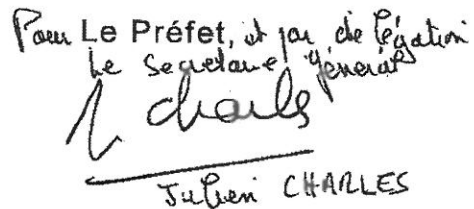 Pour Le Préfet, et par délégation
Le Secrétaire général
J Charles
Julien CHARLES